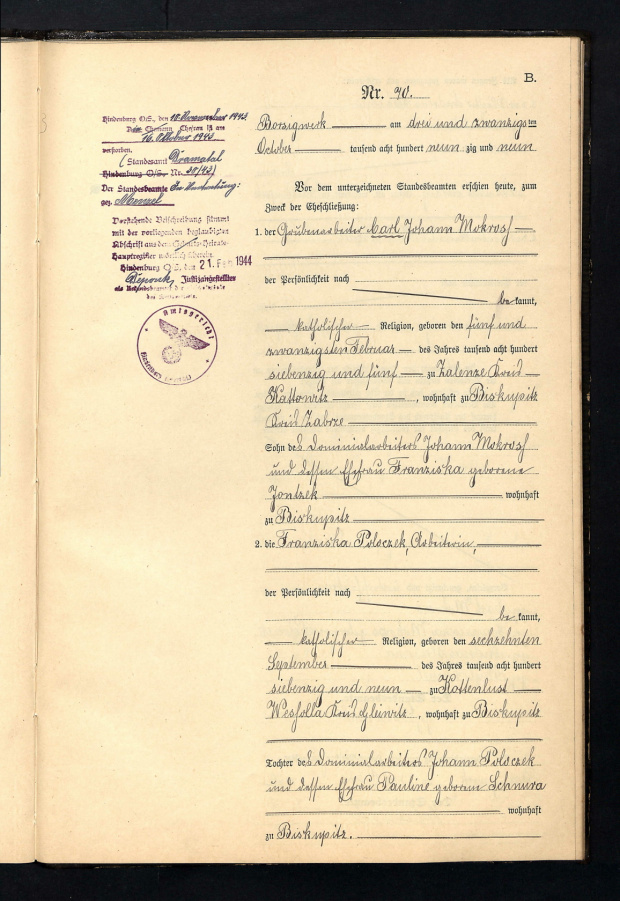 B.
Nr. 70.
Borzigwerk am drei und zwanzigsten
October tausend acht hundert neun zig und neun
Vor dem unterzeichneten Standesbeamten erschien heute, zum
Zweck der Eheschließung:
1. der Grubenarbeiter Carl Johann Mokrosch
der Persönlichkeit nach
be kannt,
katholischer Religion, geboren den fünf und
zwanzigsten Februar des Jahres tausend acht hundert
siebenzig und fünf zu Zalenze Kreis
Kattowitz, wohnhaft zu Biskupitz
Kreis Zabrze
Sohn des Dominialarbeiters Johann Mokrosch
und dessen Ehefrau Franziska geborene
Jontzek wohnhaft
zu Biskupitz
2. die Franziska Polsczek, Arbeiterin,
der Persönlichkeit nach
be kannt,
katholischer Religion, geboren den sechzehnten
September des Jahres tausend acht hundert
siebenzig und neun zu Kottenlust
Wessolla Kreis Gleiwitz, wohnhaft zu Biskupitz
Tochter des Dominialarbeiters Johann Polsczek
und dessen Ehefrau Pauline geborene Schnura
wohnhaft
zu Biskupitz.
Hindenburg O/S., den 18. November 1943
Ehemann Ehefrau ist am
16. Oktober 1943
verstorben.
(Standesamt Dramatal
Hindenburg O/S. Nr. 20/43)
Der Standesbeamte In Vertretung:
gez. Menzel
Vorstehende Beischreibung stimmt
mit der vorliegenden beglaubigten
Abschrift aus dem Heirats-
Hauptregister wörtlich überein.
Hindenburg O/S. den 21. Feb 1944
Justizangestellter
Amtsgericht